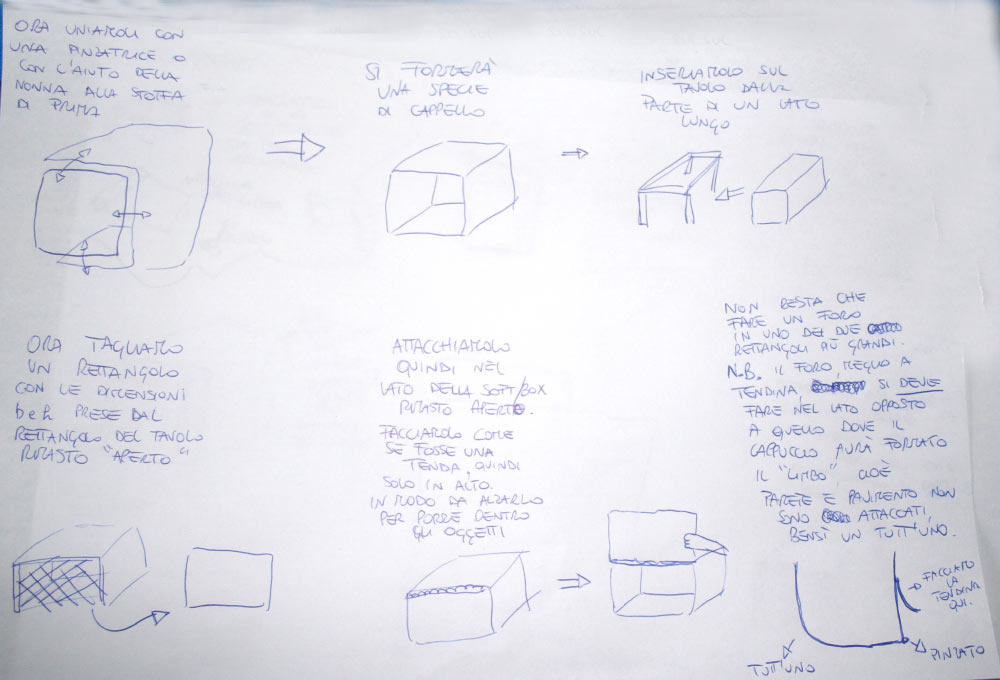 ORA UNIAMOLI CON
UNA PINZATRICE O
CON L'AIUTO DELLA
NONNA ALLA STOFFA
DI PRIMA
SI FORMERÀ
UNA SPECIE
DI CAPPELLO
INSERIAMOLO SUL
TAVOLO DALLA
PARTE DI UN LATO
LUNGO
ORA TAGLIAMO
UN RETTANGOLO
CON LE DIMENSIONI
b e h PRESE DAL
RETTANGOLO DEL TAVOLO
RIMASTO "APERTO"
ATTACCHIAMOLO
QUINDI NEL
LATO DELLA SOFT/BOX
RIMASTO APERTO.
FACCIAMOLO COME
SE FOSSE UNA
TENDA, QUINDI
SOLO IN ALTO.
IN MODO DA ALZARLO
PER PORRE DENTRO
GLI OGGETTI
NON RESTA CHE
FARE UN FORO
IN UNO DEI DUE
RETTANGOLI PIÙ GRANDI.
N.B. IL FORO, MEGLIO A
TENDINA, SI DEVE
FARE NEL LATO OPPOSTO
A QUELLO DOVE IL
CAPPUCCIO AVRÀ FORMATO
IL "LIMBO", CIOÈ
PARETE E PAVIMENTO NON
SONO ATTACCATI,
BENSÌ UN TUTT'UNO.
FACCIAMO
LA
TENDINA
QUI.
TUTT'UNO
PINZATO